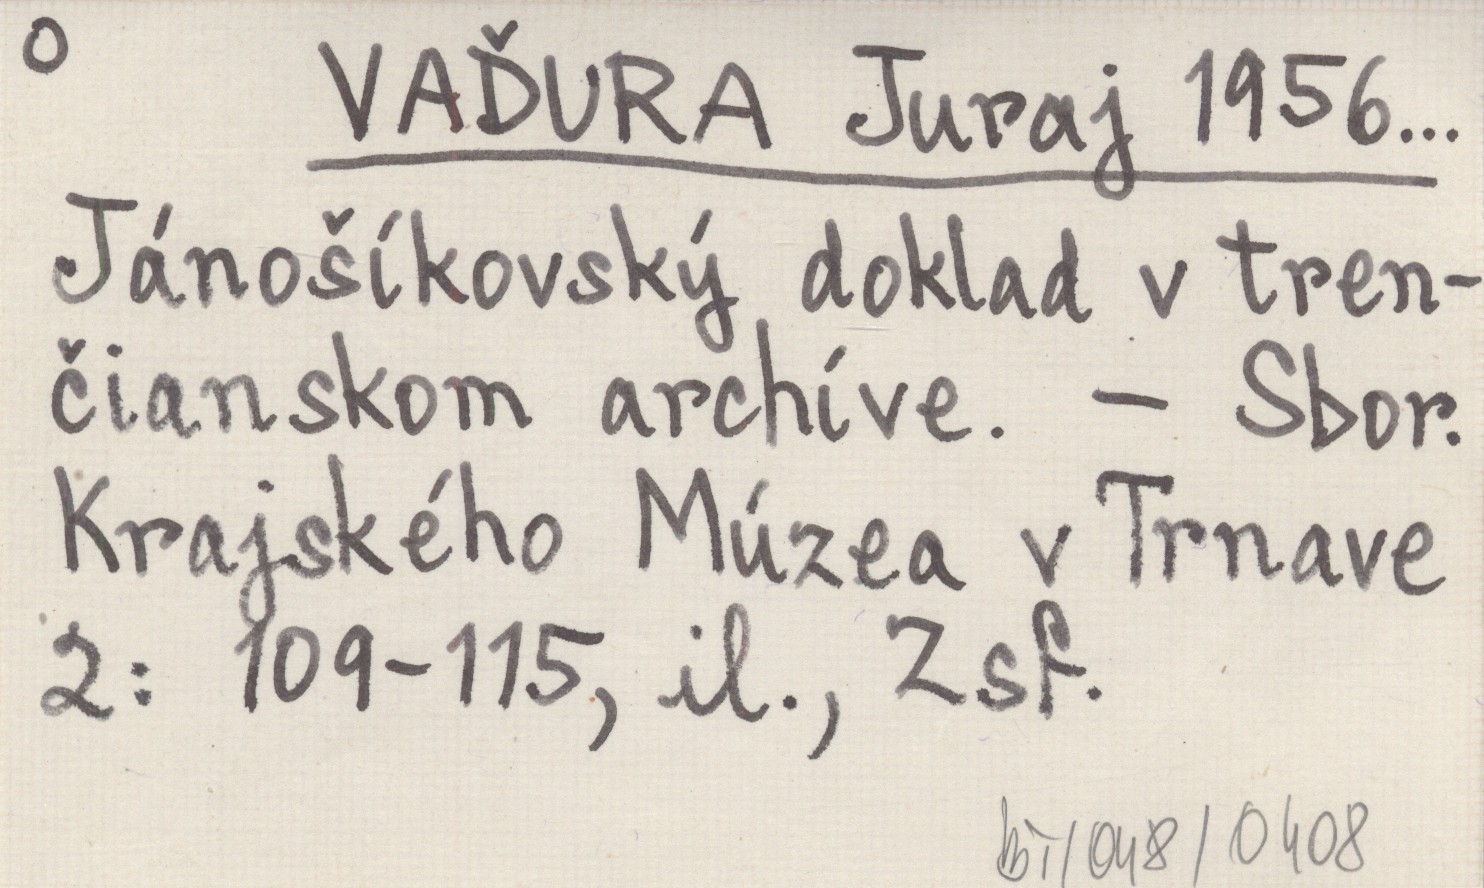 O
VAĎURA Juraj 1956...
Jánošíkovský doklad v tren-
čianskom archíve. – Sbor.
Krajského Múzea v Trnave
2: 109-115, il., Zsf.
/048/0408